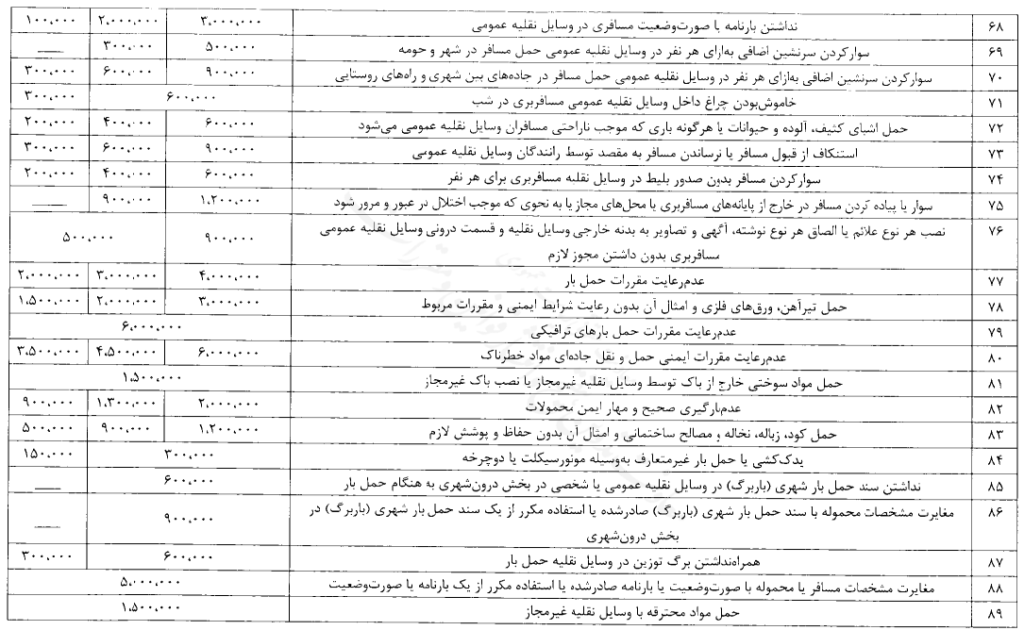 ۶۸ نداشتن بارنامه یا صورت‌وضعیت مسافری در وسایل نقلیه عمومی ۳،۰۰۰،۰۰۰ ۲،۰۰۰،۰۰۰ ۱۰۰،۰۰۰
۶۹ سوارکردن سرنشین اضافی به‌ازای هر نفر در وسایل نقلیه عمومی حمل مسافر در شهر و حومه ۵۰۰،۰۰۰ ۳۰۰،۰۰۰ ——
۷۰ سوارکردن سرنشین اضافی به‌ازای هر نفر در وسایل نقلیه عمومی حمل مسافر در جاده‌های بین شهری و راه‌های روستایی ۹۰۰،۰۰۰ ۶۰۰،۰۰۰ ۳۰۰،۰۰۰
۷۱ خاموش‌بودن چراغ داخل وسایل نقلیه عمومی مسافربری در شب ۶۰۰،۰۰۰ ۳۰۰،۰۰۰
۷۲ حمل اشیای کثیف، آلوده و حیوانات یا هرگونه باری که موجب ناراحتی مسافران وسایل نقلیه عمومی می‌شود ۶۰۰،۰۰۰ ۴۰۰،۰۰۰ ۲۰۰،۰۰۰
۷۳ استنکاف از قبول مسافر یا نرساندن مسافر به مقصد توسط رانندگان وسایل نقلیه عمومی ۹۰۰،۰۰۰ ۶۰۰،۰۰۰ ۳۰۰،۰۰۰
۷۴ سوارکردن مسافر بدون صدور بلیط در وسایل نقلیه مسافربری برای هر نفر ۶۰۰،۰۰۰ ۴۰۰،۰۰۰ ۲۰۰،۰۰۰
۷۵ سوار یا پیاده کردن مسافر در خارج از پایانه‌های مسافربری یا محل‌های مجاز یا به نحوی که موجب اختلال در عبور و مرور شود ۱،۲۰۰،۰۰۰ ۹۰۰،۰۰۰ ——
۷۶ نصب هر نوع علائم یا الصاق هر نوع نوشته، آگهی و تصاویر به بدنه خارجی وسایل نقلیه و قسمت درونی وسایل نقلیه عمومی ۹۰۰،۰۰۰ ۵۰۰،۰۰۰
مسافربری بدون داشتن مجوز لازم
۷۷ عدم‌رعایت مقررات حمل بار ۴،۰۰۰،۰۰۰ ۳،۰۰۰،۰۰۰ ۲،۰۰۰،۰۰۰
۷۸ حمل تیرآهن، ورق‌های فلزی و امثال آن بدون رعایت شرایط ایمنی و مقررات مربوط ۳،۰۰۰،۰۰۰ ۲،۰۰۰،۰۰۰ ۱،۵۰۰،۰۰۰
۷۹ عدم‌رعایت مقررات حمل بارهای ترافیکی ۶،۰۰۰،۰۰۰
۸۰ عدم‌رعایت مقررات ایمنی حمل و نقل جاده‌ای مواد خطرناک ۶،۰۰۰،۰۰۰ ۴،۵۰۰،۰۰۰ ۳،۵۰۰،۰۰۰
۸۱ حمل مواد سوختی خارج از باک توسط وسایل نقلیه غیرمجاز یا نصب باک غیرمجاز ۱،۵۰۰،۰۰۰
۸۲ عدم‌بارگیری صحیح و مهار ایمن محمولات ۲،۰۰۰،۰۰۰ ۱،۳۰۰،۰۰۰ ۹۰۰،۰۰۰
۸۳ حمل کود، زباله، نخاله و مصالح ساختمانی و امثال آن بدون حفاظ و پوشش لازم ۱،۲۰۰،۰۰۰ ۹۰۰،۰۰۰ ۵۰۰،۰۰۰
۸۴ یدک‌کشی یا حمل بار غیرمتعارف به‌وسیله موتورسیکلت یا دوچرخه ۳۰۰،۰۰۰ ۱۵۰،۰۰۰
۸۵ نداشتن سند حمل بار شهری (باربرگ) در وسایل نقلیه عمومی یا شخصی در بخش درون‌شهری به هنگام حمل بار ۶۰۰،۰۰۰ ——
۸۶ مغایرت مشخصات محموله با سند حمل بار شهری (باربرگ) صادرشده یا استفاده مکرر از یک سند حمل بار شهری (باربرگ) در ۹۰۰،۰۰۰ ——
بخش درون‌شهری
۸۷ همراه‌نداشتن برگ توزین در وسایل نقلیه حمل بار ۶۰۰،۰۰۰ ۳۰۰،۰۰۰
۸۸ مغایرت مشخصات مسافر یا محموله با صورت‌وضعیت یا بارنامه صادرشده یا استفاده مکرر از یک بارنامه یا صورت‌وضعیت ۵،۰۰۰،۰۰۰
۸۹ حمل مواد محترقه با وسایل نقلیه غیرمجاز ۱،۵۰۰،۰۰۰